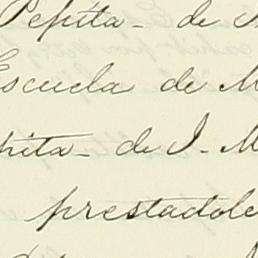 Pepita - de
Escuela de M
pita - de J - M
prestadole